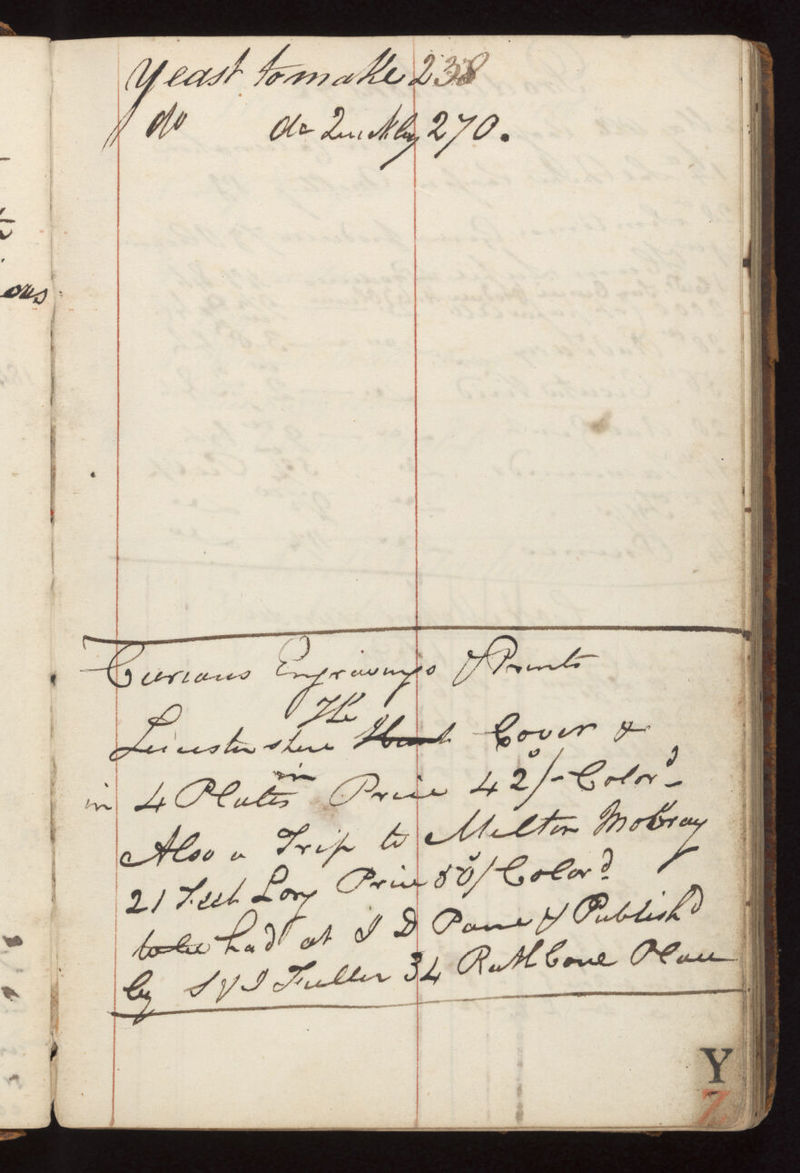 Yeast to make 238
do do Quickly 270.
ous
Curious Engravings & Prints
The
Leicestershire Hunt Cover &
in
in 4 Plates Price 42/- Color'd
Also a Trip to Melton Mobray
21 Feet Long Price 50/ Color'd
to be had at I D Paine & Publish'd
by S & I Fuller 34 Rathbone Place
Y
Z